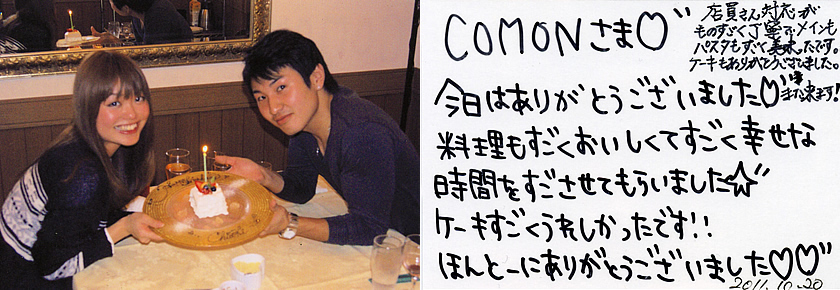 COMONさま♡
店員さん対応が
ものすごく丁寧で、メインも
パスタもすごく美味しかったです。
ケーキもありがとうございました。
また来ます!
今日はありがとうございました♡
料理もすごくおいしくてすごく幸せな
時間をすごさせてもらいました☆
ケーキすごくうれしかったです!!
ほんとーにありがとうございました♡♡
2011.10.20